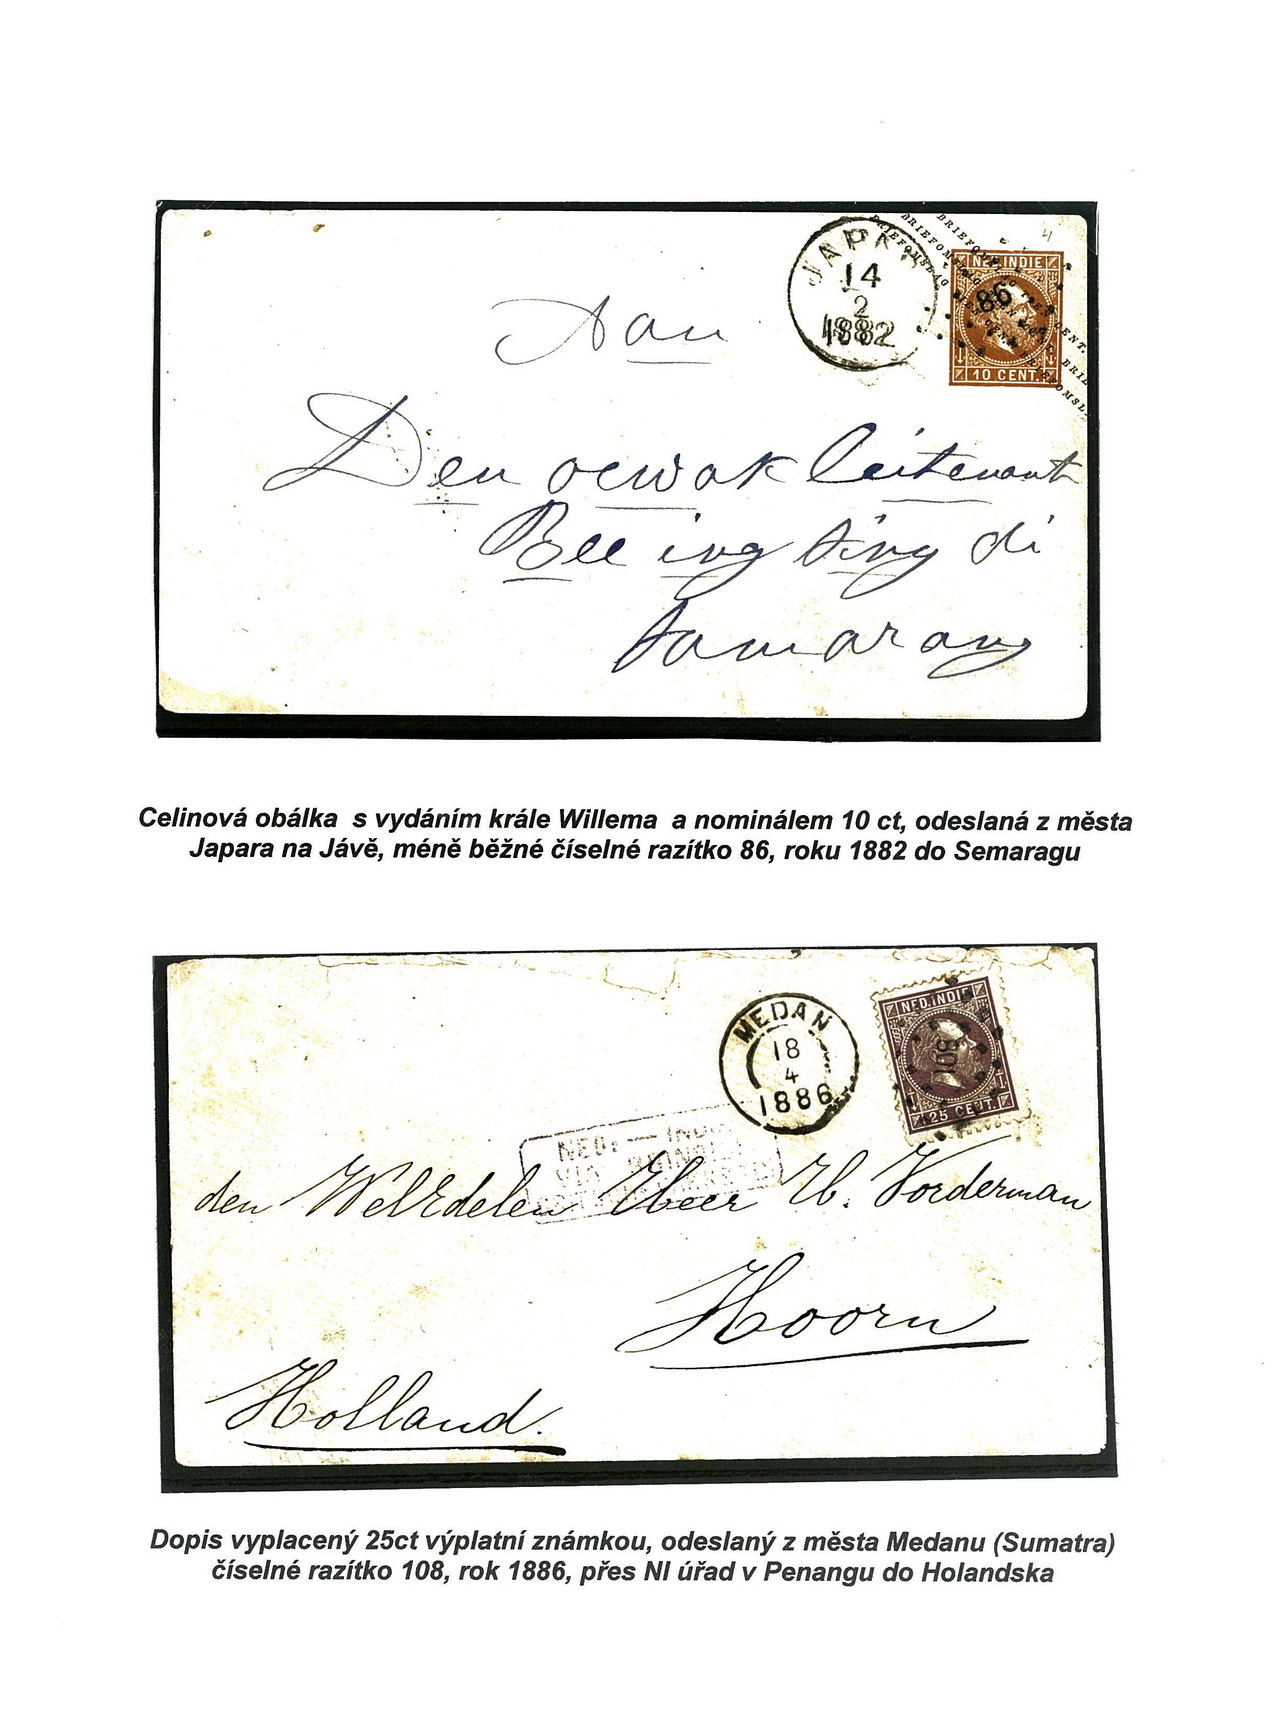 JAPARA
14
2
1882
NED. INDIE
86
10 CENT.
Aan
Den
leitenant
Bee ing
di
Samarang
Celinová obálka s vydáním krále Willema a nominálem 10 ct, odeslaná z města
Japara na Jávě, méně běžné číselné razítko 86, roku 1882 do Semaragu
MEDAN
18
4
1886
NED. INDIE
108
25 CENT.
NED. — INDIE
VIA
den WelEdelen Heer H. Vorderman
Hoorn
Holland.
Dopis vyplacený 25ct výplatní známkou, odeslaný z města Medanu (Sumatra)
číselné razítko 108, rok 1886, přes NI úřad v Penangu do Holandska